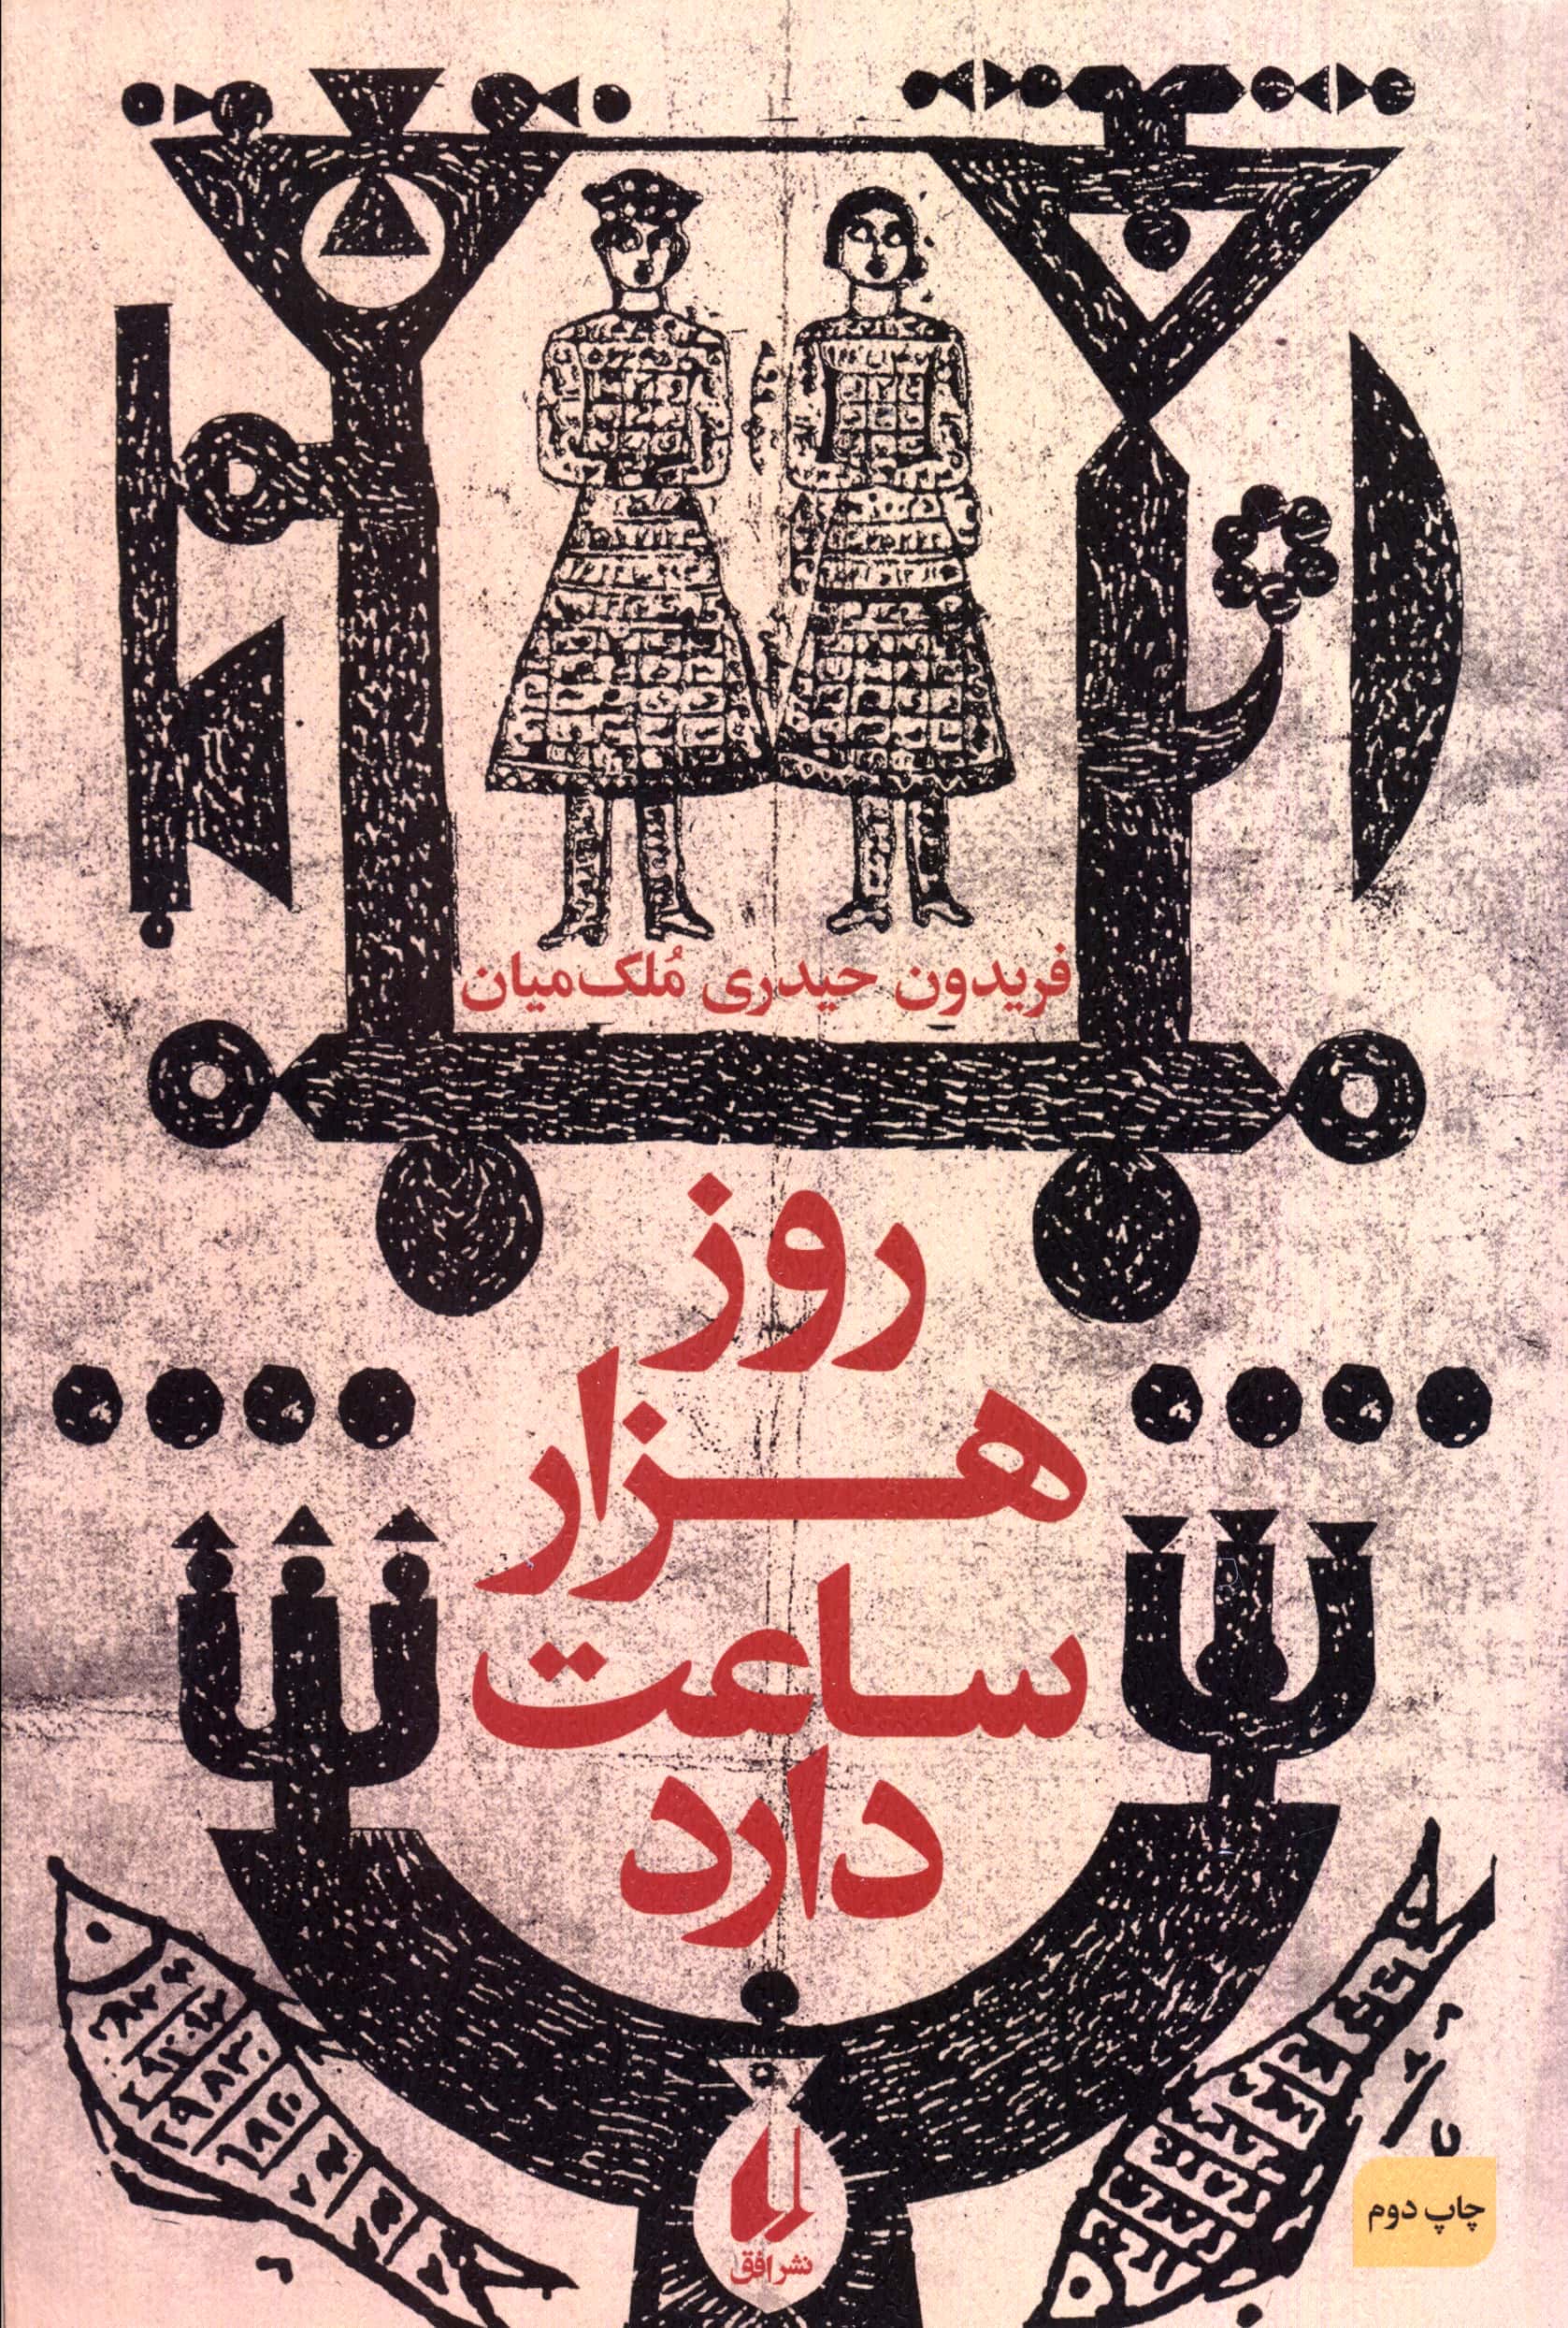 فریدون حیدری مُلک‌میان
روز
هزار
ساعت
دارد
نشر افق
چاپ دوم